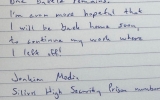 One bullet remains.
I'm even more hopeful that
I will be back home soon,
to continue my work where
I left off!
Jenkim Modis
Silion High Security Prison number